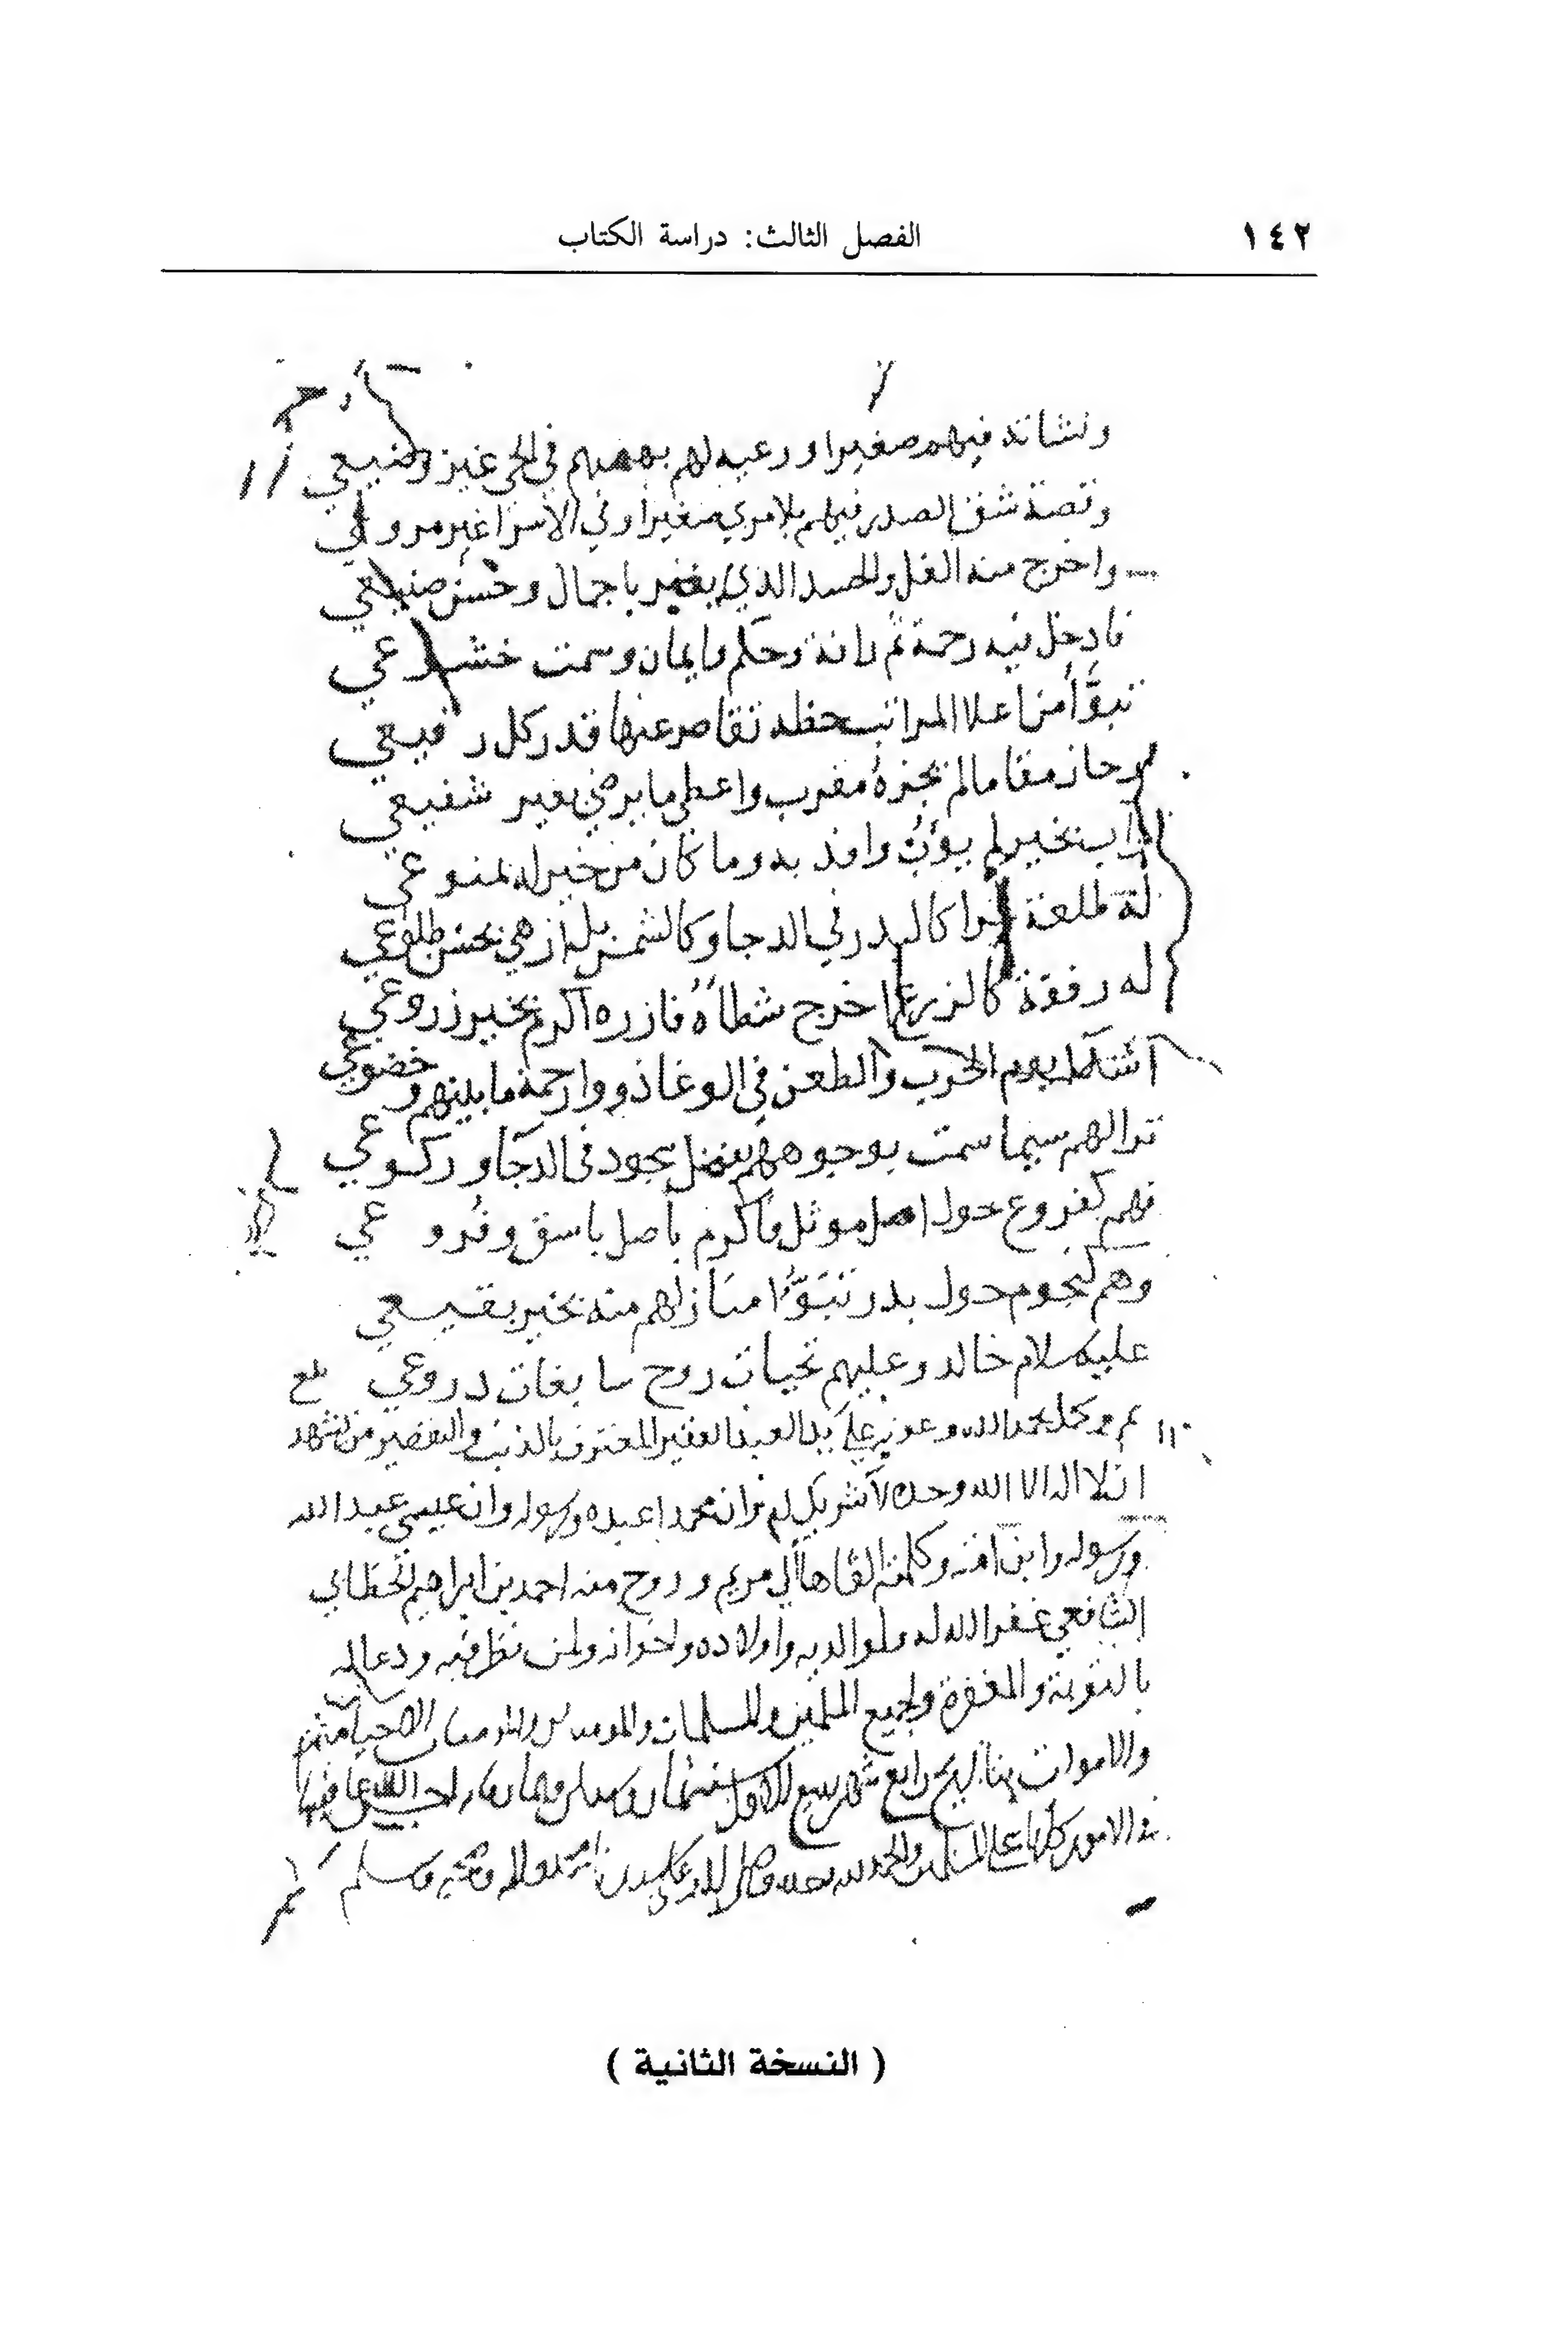 ١٤٢
الفصل الثالث: دراسة الكتاب
ونشاته فيهم صغيرا ورعيه لهم بهمهم في الحي غير وضيعي
وقصة شق الصدر فيهم بلا مري صغيرا وفي الاسرا غير مروعي
واخرج منه الغل والحسد الذي يغير باجمال وحسن صنيعي
فادخل فيه رحمة ثم رافة وحكم وايمان وسمت خشوعي
تبوّأ من اعلا المراتب حظه تقاصر عنها قدر كل رفيعي
وحاز مقاما لم يجزه مقرب واعطى ما يرضى بغير شفيعي
بخير لم يؤب وافد به وما كان من خير له بمنوعي
له طلعة غرا كالبدر في الدجا وكالشمس بل ازهى بحسن طلوعي
له رفقة كالزرع اخرج شطأه فازره اكرم بخير زروعي
اشدا يوم الحرب والطعن في الوغا ذووا رحمة ما بينهم وخضوعي
ترا لهم سيما سمت بوجوههم بفضل سجود في الدجا وركوعي
فهم كفروع حول اصل موثل فاكرم باصل باسق وفروعي
وهم كنجوم حول بدر تبوّوا منازلهم منه بخير بقيعي
عليه سلام خالد وعليهم تحيات روح سابغات دروعي
تم وكمل بحمد الله وعونه على يد العبد الفقير المعترف بالذنب والتقصير من شهد
ان لا اله الا الله وحده لا شريك له وان محمدا عبده ورسوله وان عيسى عبد الله
ورسوله وابن امته وكلمته القاها الى مريم وروح منه احمد بن ابراهيم
الشافعي غفر الله له ولوالديه واولاده واخوانه ولمن نظر فيه ودعا له
بالتوبة والمغفرة ولجميع المسلمين والمسلمات والمومنين والمومنات الاحيا منهم
والاموات بتاريخ رابع شهر ربيع الاول سنة ثمان
الامور كلها والحمد لله وحده وصلى الله على سيدنا محمد واله وصحبه وسلم
( النسخة الثانية )